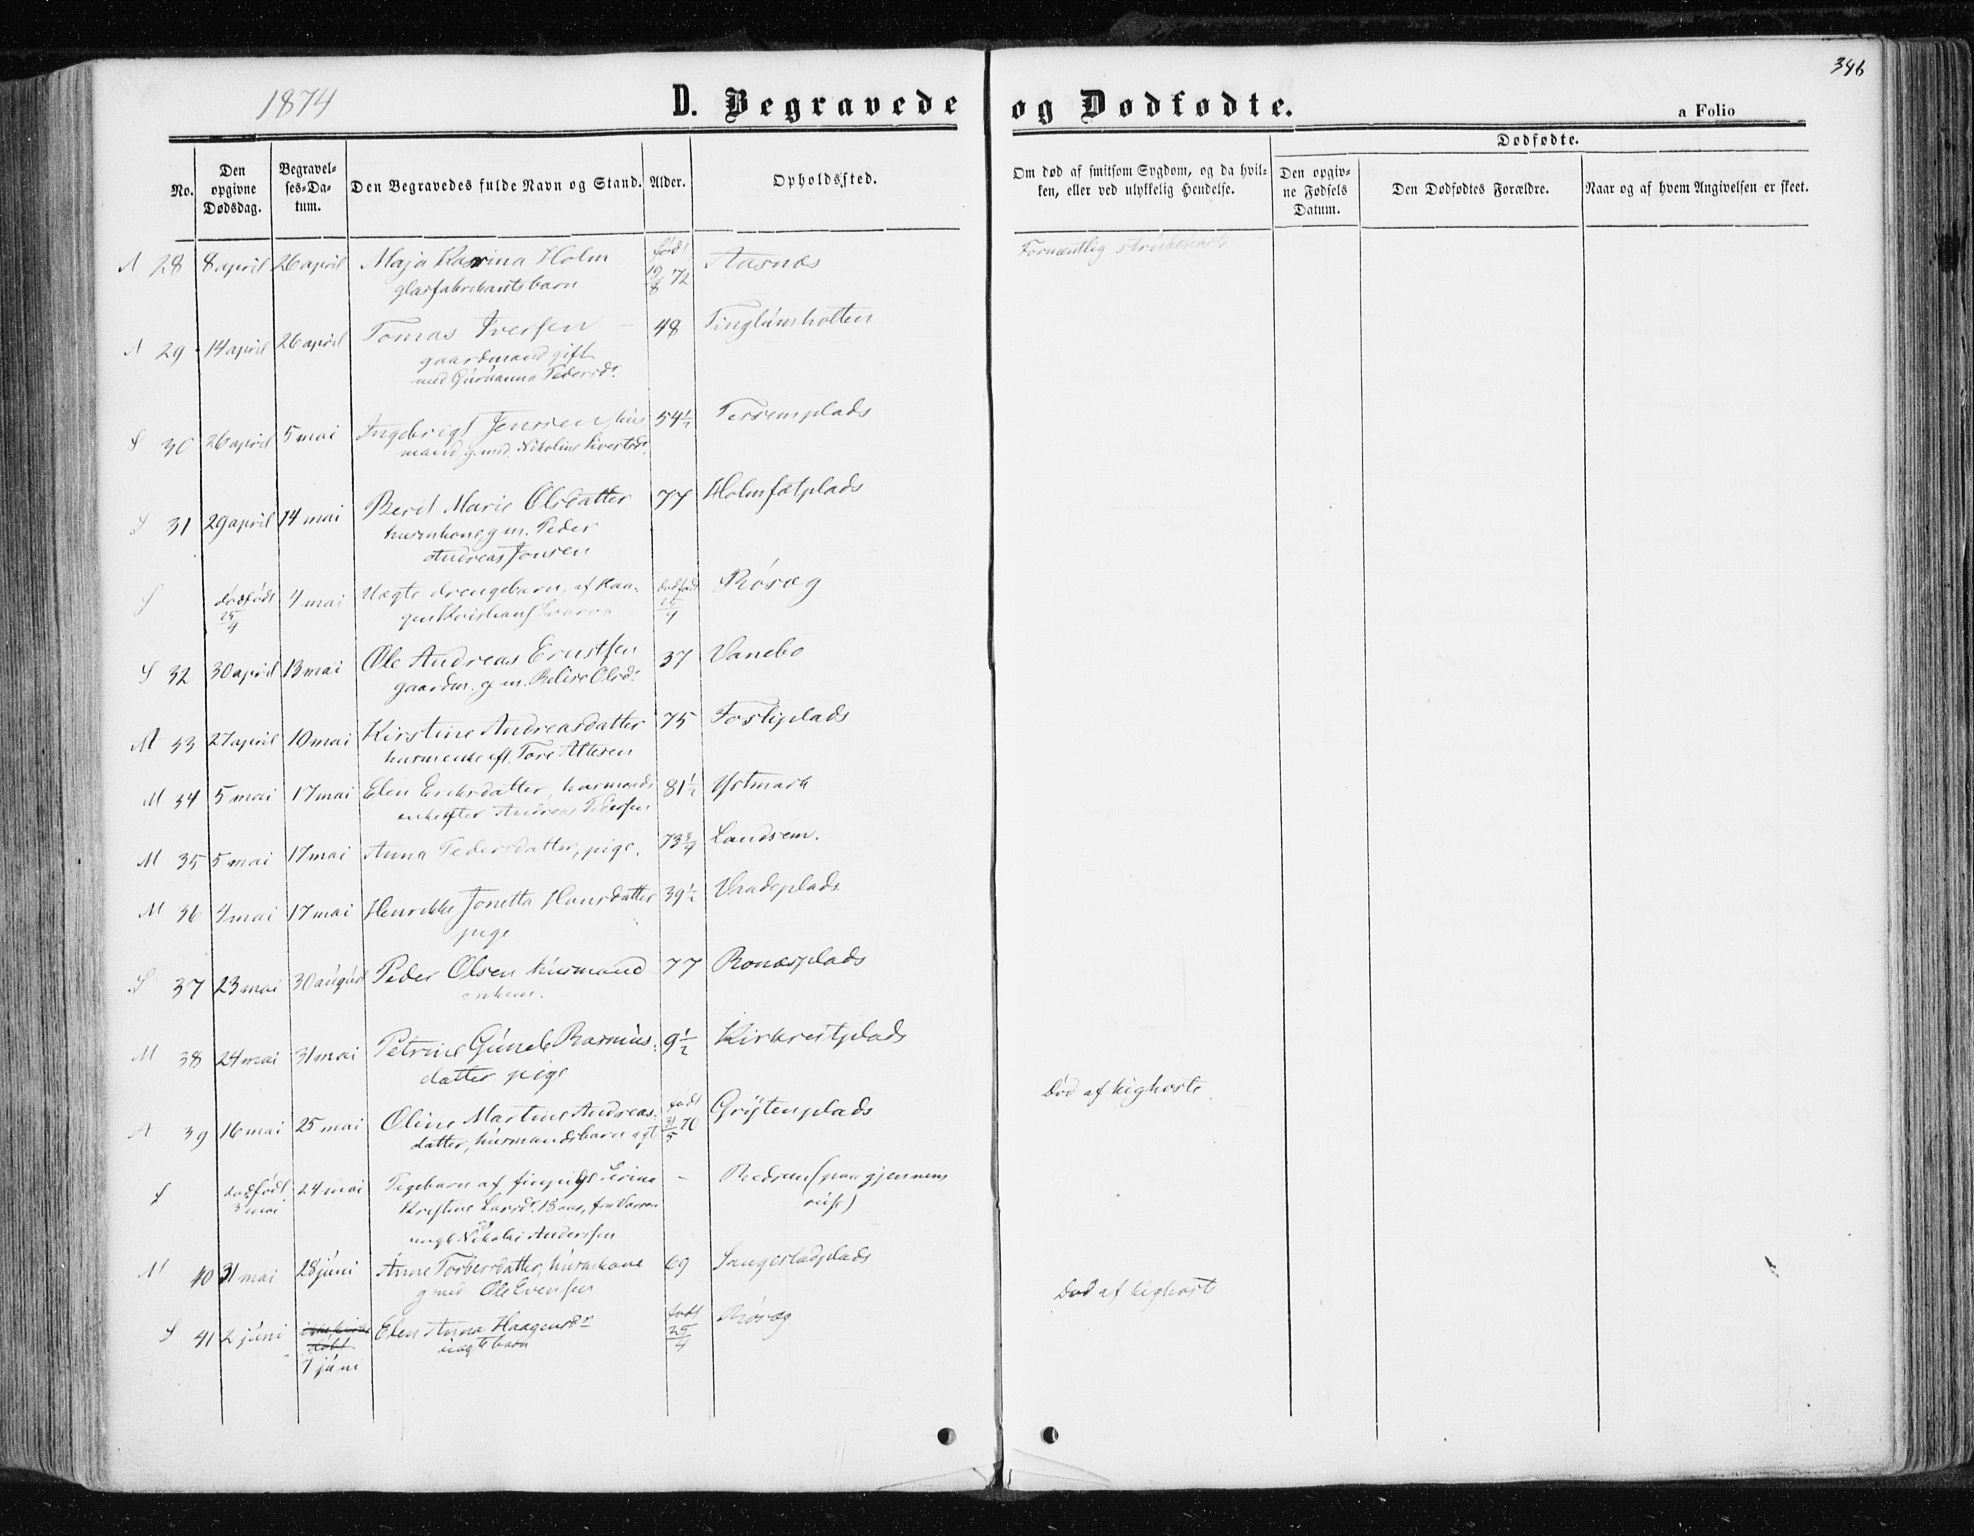 346
1874
D. Begravede og Dødfødte.
a Folio
No.
Den opgivne Dødsdag.
Begravelses-Datum.
Den Begravedes fulde Navn og Stand.
Alder.
Opholdssted.
Om død af smitsom Sygdom, og da hvilken, eller ved ulykkelig Hendelse.
Dødfødte.
Den opgivne Fødsels Datum.
Den Dødfødtes Forældre.
Naar og af hvem Angivelsen er skeet.
A 28 8 april 26 april Maja Karina Holm født 19/8 72 Aasnæs Formentlig
glasfabrikantsbarn
A 29 14 april 26 april Tomas Iversen 48
gaardmand gift
med Guruanna Pedersdr.
S 30 26 april 5 mai Ingebrigt Jensen, hus 54½ Tersemplads
mand g. med. Nikoline
S 31 29 april 14 mai Berit Marie Olsdatter 77 Holmsetplads
huskone g m. Peder
Andreas Jonsen
S dødfødt 25/4 4 mai Uægte drengebarn, af Haa- dødfødt 25/4 Røsæg
S 32 30 april 13 mai Ole Andreas Ernstsen 37 Vanebo
gaardm. g. m. Olsdr.
M 33 27 april 10 mai Kirstine Andreasdatter 75 Fosliplads
husmenke eft. Tore
M 34 5 mai 17 mai Elen Eriksdatter, husmands 81½ Østmark
enke efter Andreas Pedersen
M 35 5 mai 17 mai Anna Pedersdatter, pige. 73¾ Landsem.
M 36 4 mai 17 mai Henrikke Jonetta Hansdatter 39½
pige
S 37 23 mai 30 august Peder Olsen husmand 77 Ronæsplads
enkem.
M 38 24 mai 31 mai Petrine Rasmus- 9½
datter pige
A 39 16 mai 25 mai Oline Martine Andreas- født 31/5 70 Grøtenplads Død af kighoste.
datter, husmandsbarn ægt
S dødfødt 3 mai 24 mai Pigebarn af - (paa gjennem
Kristine Larsd. reise)
Nikolai Anderssen
M 40 31 mai 28 juni Anne Torbersdatter, huskone 69
g med Ole Evensen
Død af kighoste
S 41 2 juni Elen Anna Haagensdr født 25/4 Røsæg
døbt uægte barn
7 juni